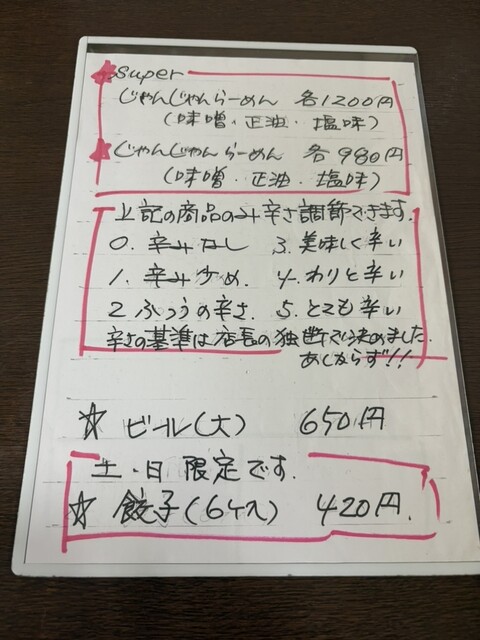 ★super
じゃんじゃんらーめん 各1200円
(味噌・正油・塩味)
★じゃんじゃんらーめん 各980円
(味噌・正油・塩味)
上記の商品のみ辛さ調節できます.
0. 辛みなし 3. 美味しく辛い
1. 辛み少め. 4. わりと辛い
2. ふつうの辛さ. 5. とても辛い
辛さの基準は店長の独断で決めました.
あしからず!!
☆ ビール(大) 650円
土・日限定です.
☆ 餃子(6ケ入) 420円.